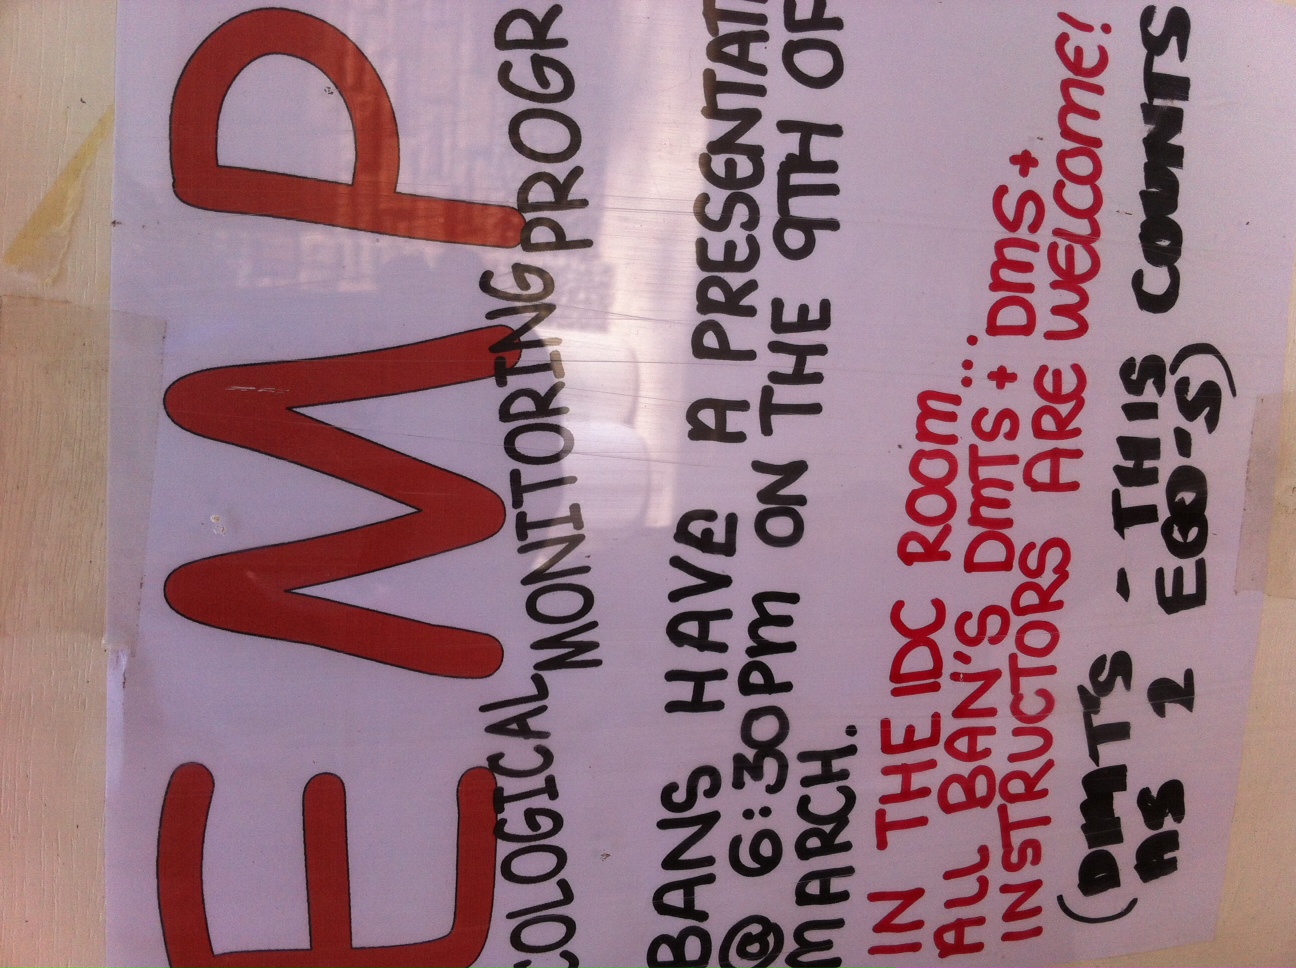 EMP
COLOGICAL MONITORING PROGR
BANS HAVE A PRESENTATI
@ 6:30PM ON THE 9TH OF
MARCH.
IN THE IDC ROOM...
ALL BAN'S DMTS + DMS +
INSTRUCTORS ARE WELCOME!
(DMT'S - THIS COUNTS
AS 2 EGO-S)